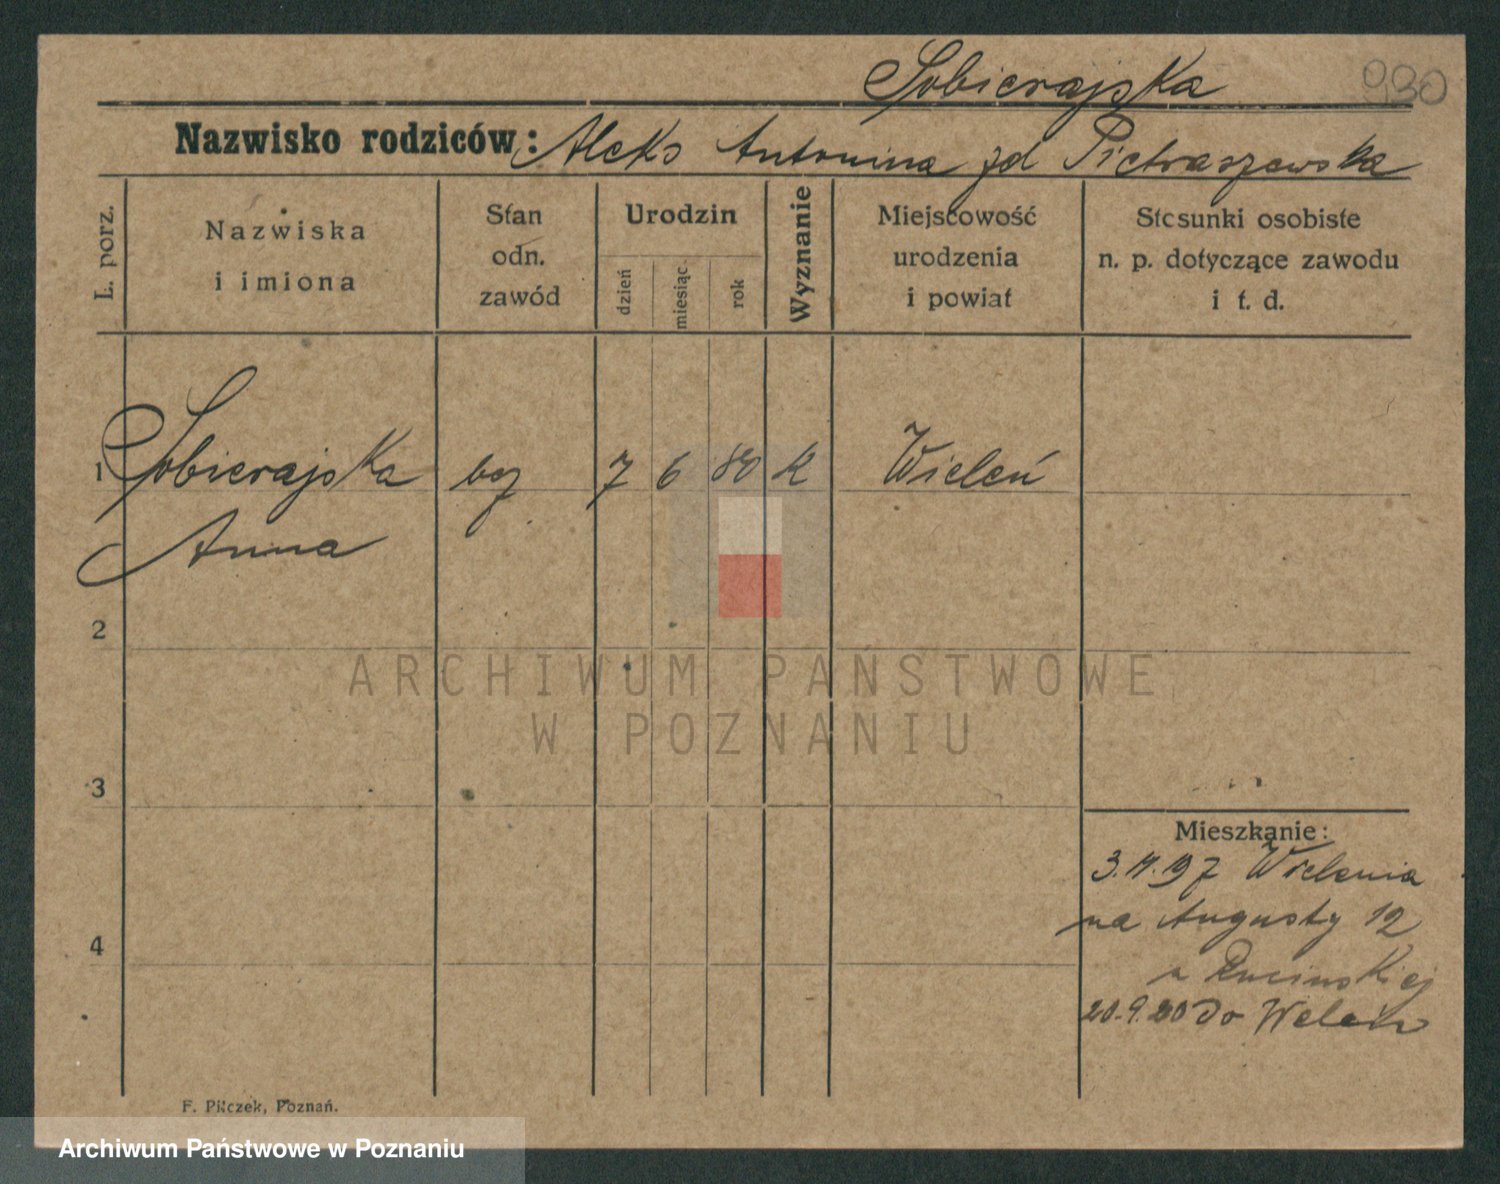 Sobierajska 930
Nazwisko rodziców: Aleks Antonina zd Pietraszewska
L. porz.
Nazwiska
i imiona
Stan
odn.
zawód
Urodzin
dzień
miesiąc.
rok
Wyznanie
Miejscowość
urodzenia
i powiat
Stosunki osobiste
n. p. dotyczące zawodu
i t. d.
1 Sobierajska bez 7 6 80 k Wieleń
Anna
2
ARCHIWUM PAŃSTWOWE
W POZNANIU
3
Mieszkanie:
3. 19 z Wielenia
na Augusty 12
4
20.9.20 Do Wieleń
F. Pilczek, Poznań.
Archiwum Państwowe w Poznaniu